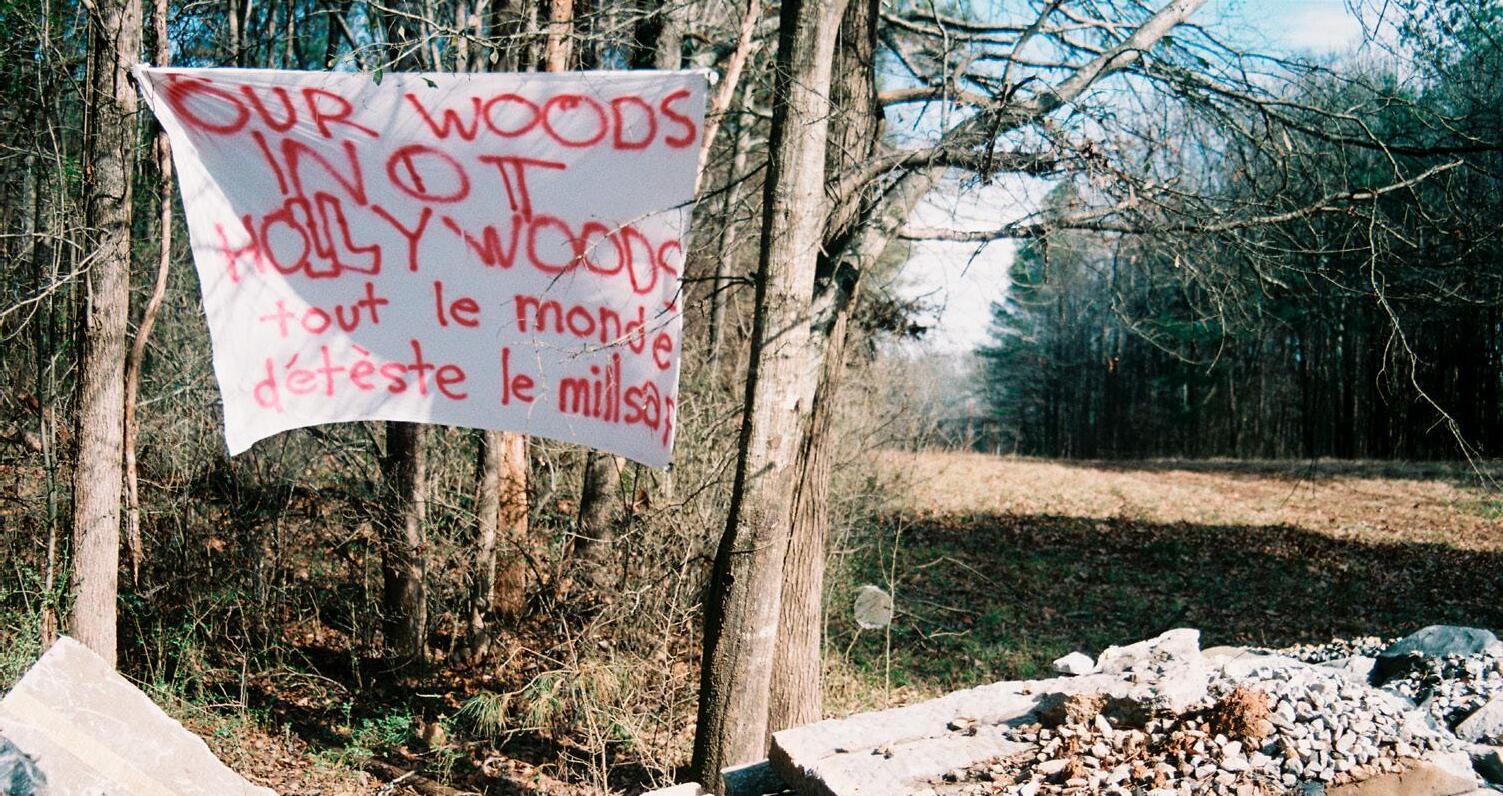 OUR WOODS
NOT
HOLLYWOODS
tout le monde
détèste le millsap